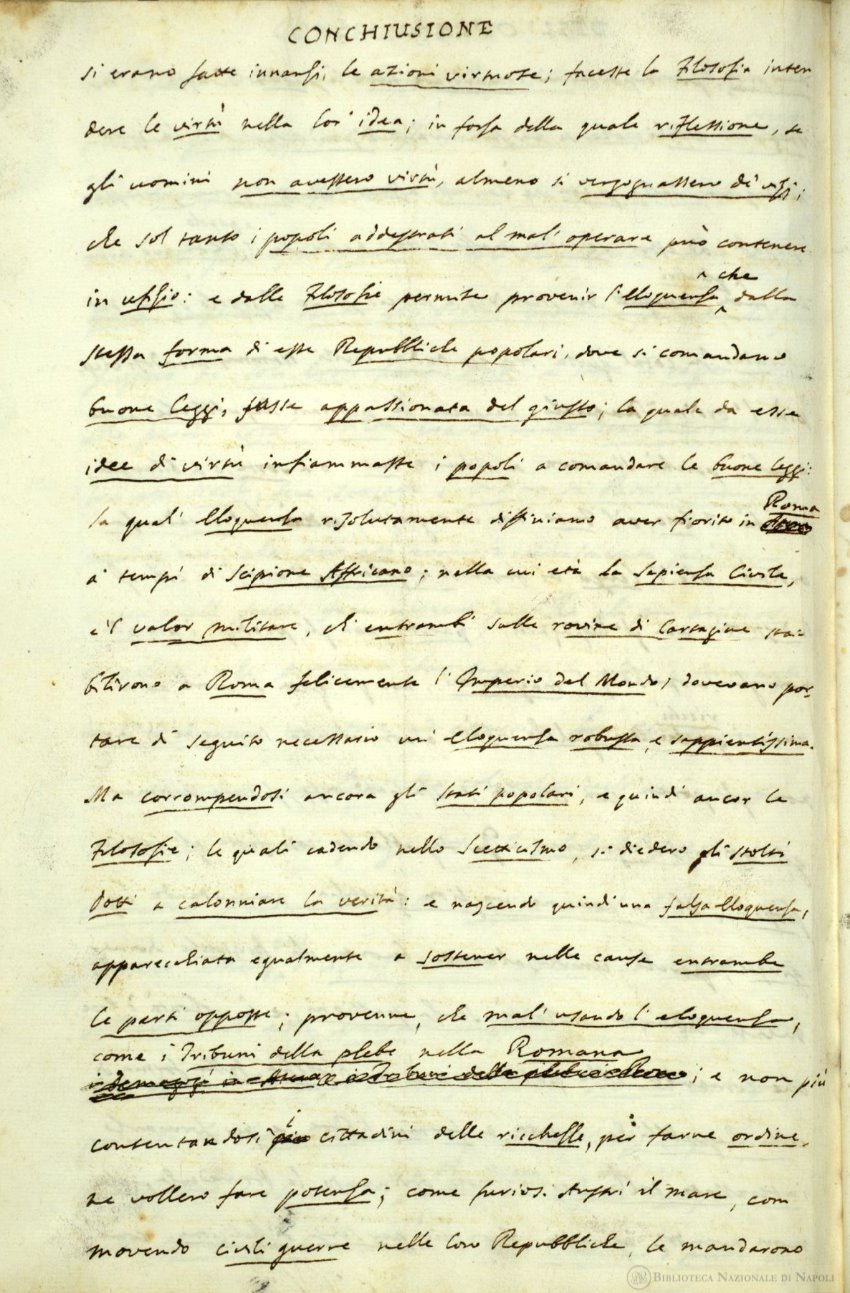 CONCHIUSIONE
si erano fatte innanzi, le azioni virtuose; facesse la Filosofia inten
dere le virtù nella lor' idea; in forza della quale riflessione, se
gli uomini non avessero virtù, almeno si vergognassero de' vizj;
che sol tanto i popoli addestrati al mal' operare può contenere
in ufizio: e dalle Filosofie permise provenir l'eloquenza, che dalla
stessa forma di esse Repubbliche popolari, dove si comandano
buone leggi, fusse appassionata del giusto; la quale da esse
idee di virtù infiammasse i popoli a comandare le buone leggi:
la qual' eloquenza risolutamente diffiniamo aver fiorito in Roma
a' tempi di Scipione Affricano; nella cui età la Sapienza Civile,
e'l valor militare, ch' entrambi sulle rovine di Cartagine sta-
bilirono a Roma felicemente l'Imperio del Mondo, dovevano por-
tare di seguito necessario un' eloquenza robusta, e sappientissima.
Ma corrompendosi ancora gli Stati popolari, e quindi ancor le
Filosofie; le quali cadendo nello Scetticismo, si diedero gli stolti
dotti a calonniare la verità: e nascendo quindi una falsa eloquenza,
apparecchiata egualmente a sostener nelle cause entrambe
le parti opposte; provenne, che mal' usando l'eloquenza,
come i Tribuni della plebe nella Romana
; e non più
contentandosi i cittadini delle ricchezze, per farne ordine,
ne vollero fare potenza; come furiosi Austri il mare, com
movendo civili guerre nelle loro Repubbliche, le mandarono
BIBLIOTECA NAZIONALE DI NAPOLI